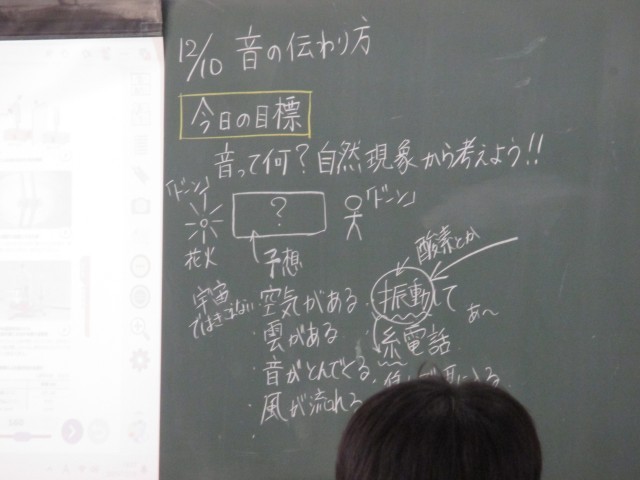 12/10 音の伝わり方
今日の目標
音って何？自然現象から考えよう!!
「ドーン」
?
「ドーン」
花火
予想
酸素とか
宇宙ではきこえない
・空気がある
・振動して
あ〜
・雲がある
糸電話
・音がとんでくる
・風が流れる